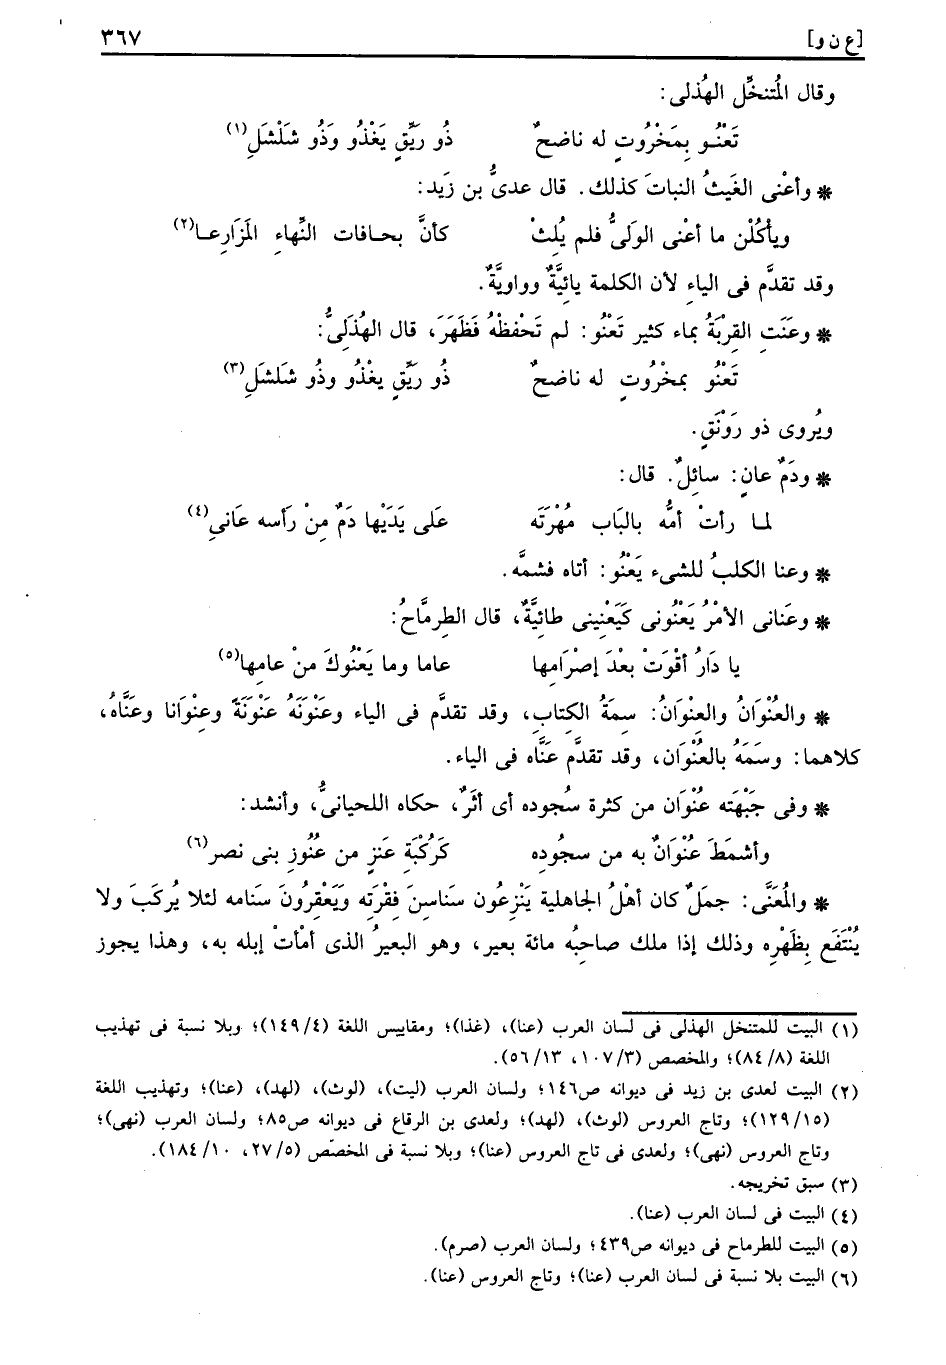 [ع ن و] ٣٦٧
وقال المُتنخِّل الهُذلى:
تَعْنُـو بِمَخْرُوتٍ له ناضحٌ ذُو رَيِّقٍ يَغْذُو وَذُو شَلْشَلِ(١)
* وأعْنى الغَيثُ النباتَ كذلك. قال عدىُّ بن زَيد:
ويأكُلْن ما أعْنى الوَلىُّ فلم يُلِثْ كأنَّ بحـافات النِّهاء المَزَارِعـا(٢)
وقد تقدَّم فى الياءِ لأن الكلمة يائيَّةٌ وواويَّةٌ.
* وعَنَتِ القِرْبَةُ بماء كثير تَعْنُو: لم تَحْفظْهُ فَظَهَرَ، قال الهُذَلىُّ:
تَعْنُو بمخْرُوتٍ له ناضحٌ ذُو رَيِّقٍ يغْذُو وذُو شَلشَلِ(٣)
ويُروى ذو رَوْنَقٍ.
* ودَمٌ عانٍ: سائِلٌ. قال:
لمـا رأتْ أمُّه بالبَاب مُهْرَتَه عَلى يَدَيْها دَمٌ مِنْ رَأسه عَانىِ(٤)
* وعنا الكلبُ للشىء يَعْنُو: أتاه فشمَّه.
* وعَنانى الأمْرُ يَعْنُونى كَيَعْنِينى طائِيَّةٌ، قال الطِرمَّاحُ:
يا دَارُ أقْوَتْ بعْدَ إصْرَامِها عاما وما يَعْنُوكَ مِنْ عامِها(٥)
* والعُنْوَانُ والعِنْوَانُ: سِمَةُ الكتابِ، وقد تقدَّم فى الياء وعَنْوَنَهُ عَنْوَنَةً وعِنْوَانا وعَنَّاهُ،
كلاهما: وسَمَهُ بالعُنْوَان، وقد تقدَّم عَنَّاه فى الياء.
* وفى جَبْهَته عُنْوَان من كثرة سُجوده أى أثَرٌ، حكاه اللحيانىُّ، وأنشد:
وأشمَطَ عُنْوَانٌ به من سجُودِه كَرُكْبَةِ عَنزٍ من عُنُوزِ بنى نصر(٦)
* والمُعَنَّى: جملٌ كان أهْلُ الجاهلية يَنْزِعُون سَناسِنَ فِقْرَتِه وَيَعْقِرُونَ سَنامه لئلا يُركَبَ ولا
يُنْتَفَع بِظَهْرِه وذلك إذا ملك صاحبُه مائة بعير، وهو البعيرُ الذى أمْأتْ إبله به، وهذا يجوز
(١) البيت للمتنخل الهذلى فى لسان العرب (عنا)، (غذا)؛ ومقاييس اللغة (١٤٩/٤)؛ وبلا نسبة فى تهذيب
اللغة (٨٤/٨)؛ والمخصص (١٠٧/٣، ٥٦/١٣).
(٢) البيت لعدى بن زيد فى ديوانه ص١٤٦؛ ولسان العرب (ليت)، (لوث)، (لهد)، (عنا)؛ وتهذيب اللغة
(١٢٩/١٥)؛ وتاج العروس (لوث)، (لهد)؛ ولعدى بن الرقاع فى ديوانه ص٨٥؛ ولسان العرب (نهى)؛
وتاج العروس (نهى)؛ ولعدى فى تاج العروس (عنا)؛ وبلا نسبة فى المخصّص (٢٧/٥، ١٨٤/١٠).
(٣) سبق تخريجه.
(٤) البيت فى لسان العرب (عنا).
(٥) البيت للطرماح فى ديوانه ص٤٣٩؛ ولسان العرب (صرم).
(٦) البيت بلا نسبة فى لسان العرب (عنا)؛ وتاج العروس (عنا).